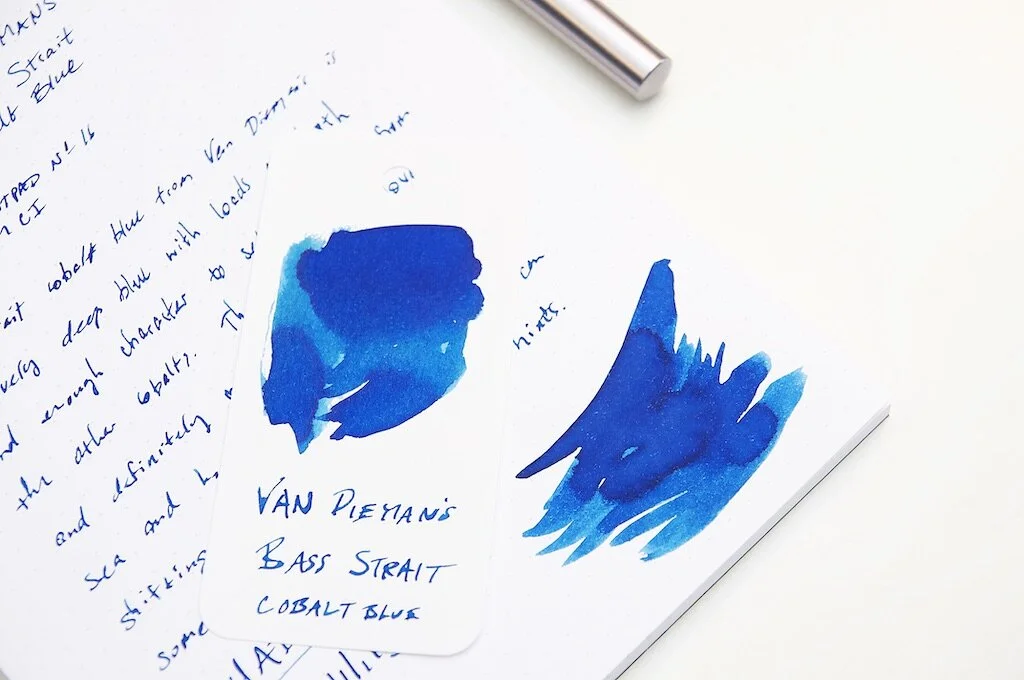 MANS
Strait
lt Blue
TPAD Nº 16
CI
ait cobalt blue from Van Dieman's is
very deep blue with loads
nd enough character to
the other cobalts. Th
and definitely
sea and
shifting
some
can
hints.
VAN DIEMAN'S
BASS STRAIT
COBALT BLUE